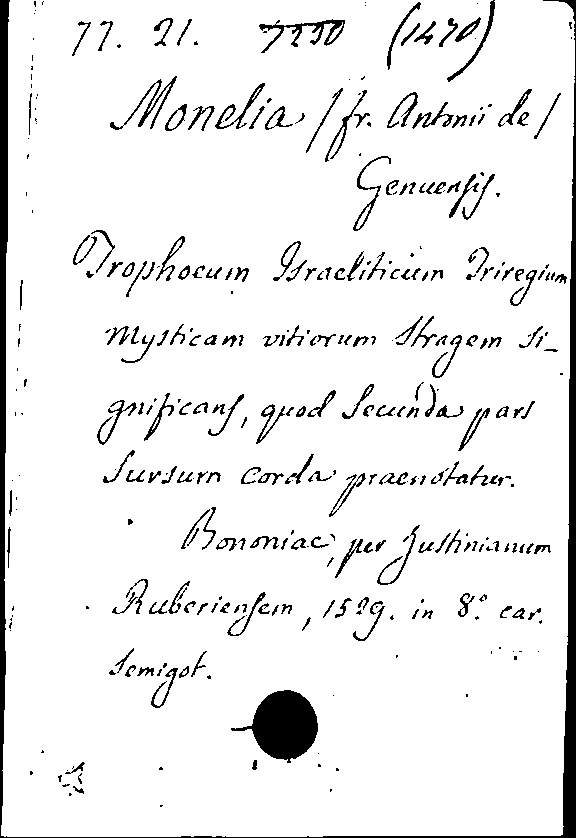 77. 21. 7230 (1470)
Monelia /fr. Antonii de/
Genuensis.
Trophoeum Israeliticum Triregium
mysticam vitiorum Stragem si-
gnificans, quod Secunda pars
Sursum corda praenotatur.
Bononiae, per Justinianum
Ruberiensem, 1529. in 8.° car.
semigot.